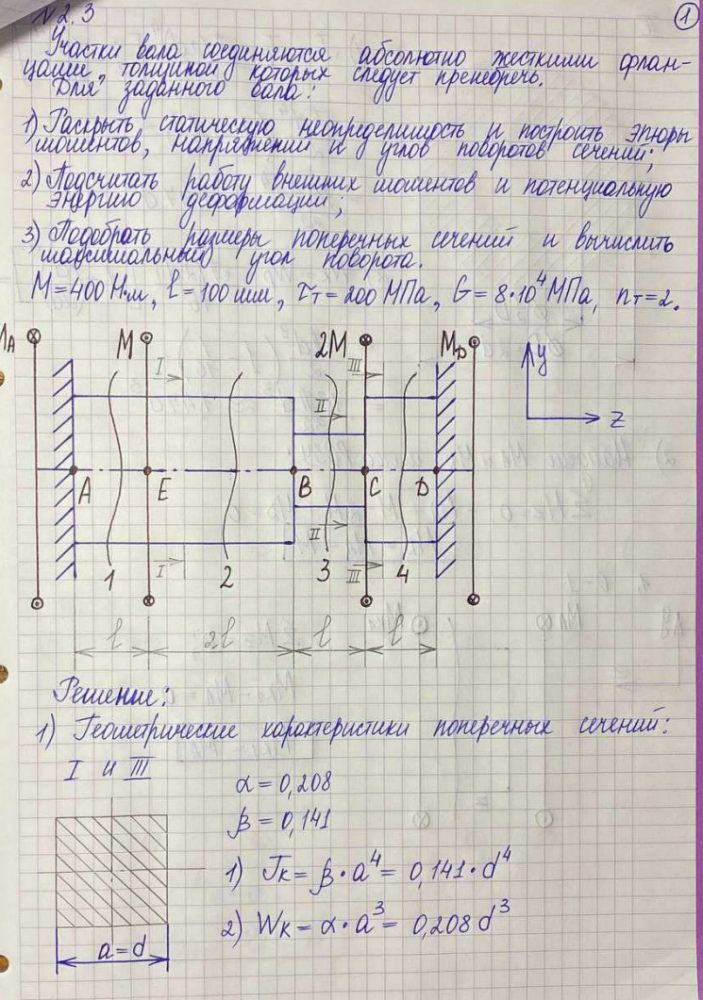 №2.3
1
Участки вала соединяются абсолютно жесткими флан-
цами, толщиной которых следует пренебречь.
Для заданного вала:
1) Раскрыть статическую неопределимость и построить эпюры
моментов, напряжений и углов поворотов сечений;
2) Подсчитать работу внешних моментов и потенциальную
энергию деформации;
3) Подобрать размеры поперечных сечений и вычислить
максимальный угол поворота.
M=400 Н·м, l=100 мм, τт=200 МПа, G=8·10⁴ МПа, nт=2.
MA M 2M MD
I II III y z
A E B C D
I II III
1 2 3 4
l 2l l l
Решение:
1) Геометрические характеристики поперечных сечений:
I и III
α=0,208
β=0,141
1) Jк=β·a⁴=0,141·d⁴
2) Wк=α·a³=0,208d³
a=d